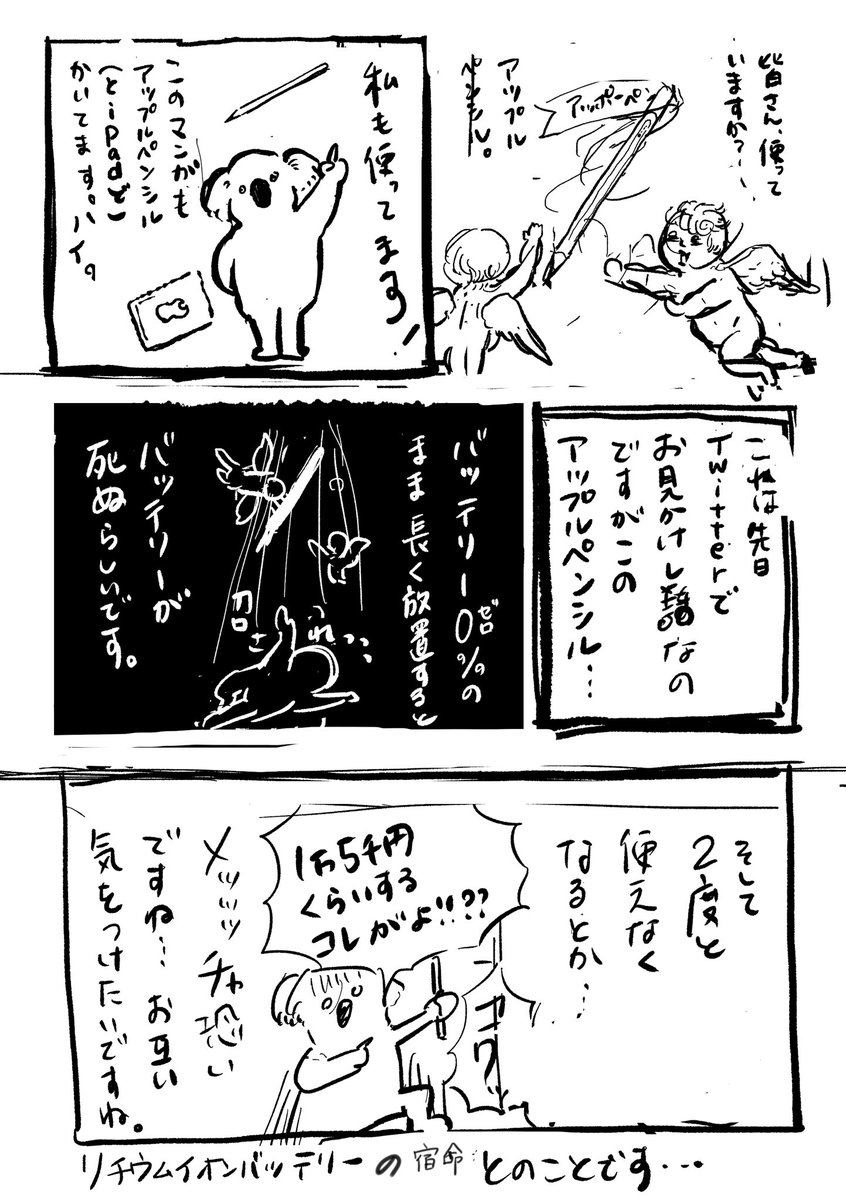 皆さん、使って
いますか？！
アップル
ペンシル。
アッポーペン
私も使ってます！
このマンガも
アップルペンシル
(とiPadど)
かいてます。ハイ。
これは先日
Twitterで
お見かけし
なの
ですがこの
アップルペンシル…
バッテリー0%の
ゼロ
まま長く放置すると
バッテリーが
死ぬらしいです。
そして
2度と
使えなく
なるとか…
1万5千円
くらいする
コレがよ!!??
コワッ
メッッッチャ恐い
ですね… お互い
気をつけたいですね。
リチウムイオンバッテリーの宿命とのことです…